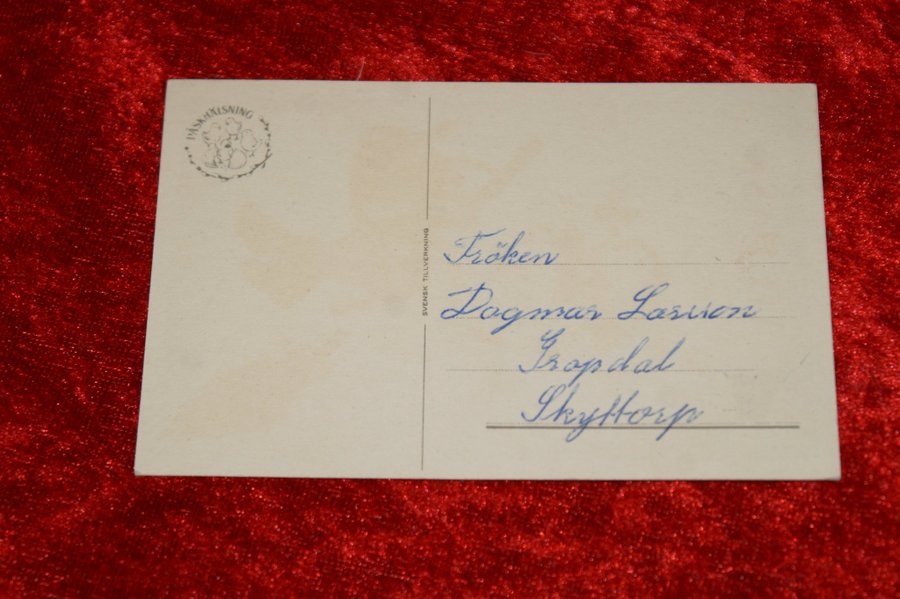 PÅSKHÄLSNING
SVENSK TILLVERKNING
Fröken
Dagmar Larsson
Gropdal
Skyttorp